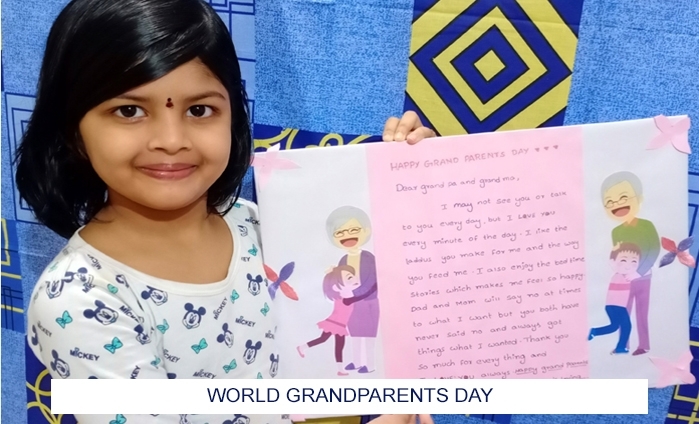 HAPPY GRAND PARENTS DAY
Dear grand pa and grand ma,
I may not see you or talk
to you every day, but I Love You
every minute of the day. I like the
laddus you make for me and the way
you feed me. I also enjoy the bed time
stories which makes me feel so happy.
Dad and mom will say no at times
to what I want but you both have
never said no and always got
things what I wanted. Thank you
so much for every thing and
you always Happy grand Parents
MICKEY
MICKEY
MICKEY
WORLD GRANDPARENTS DAY